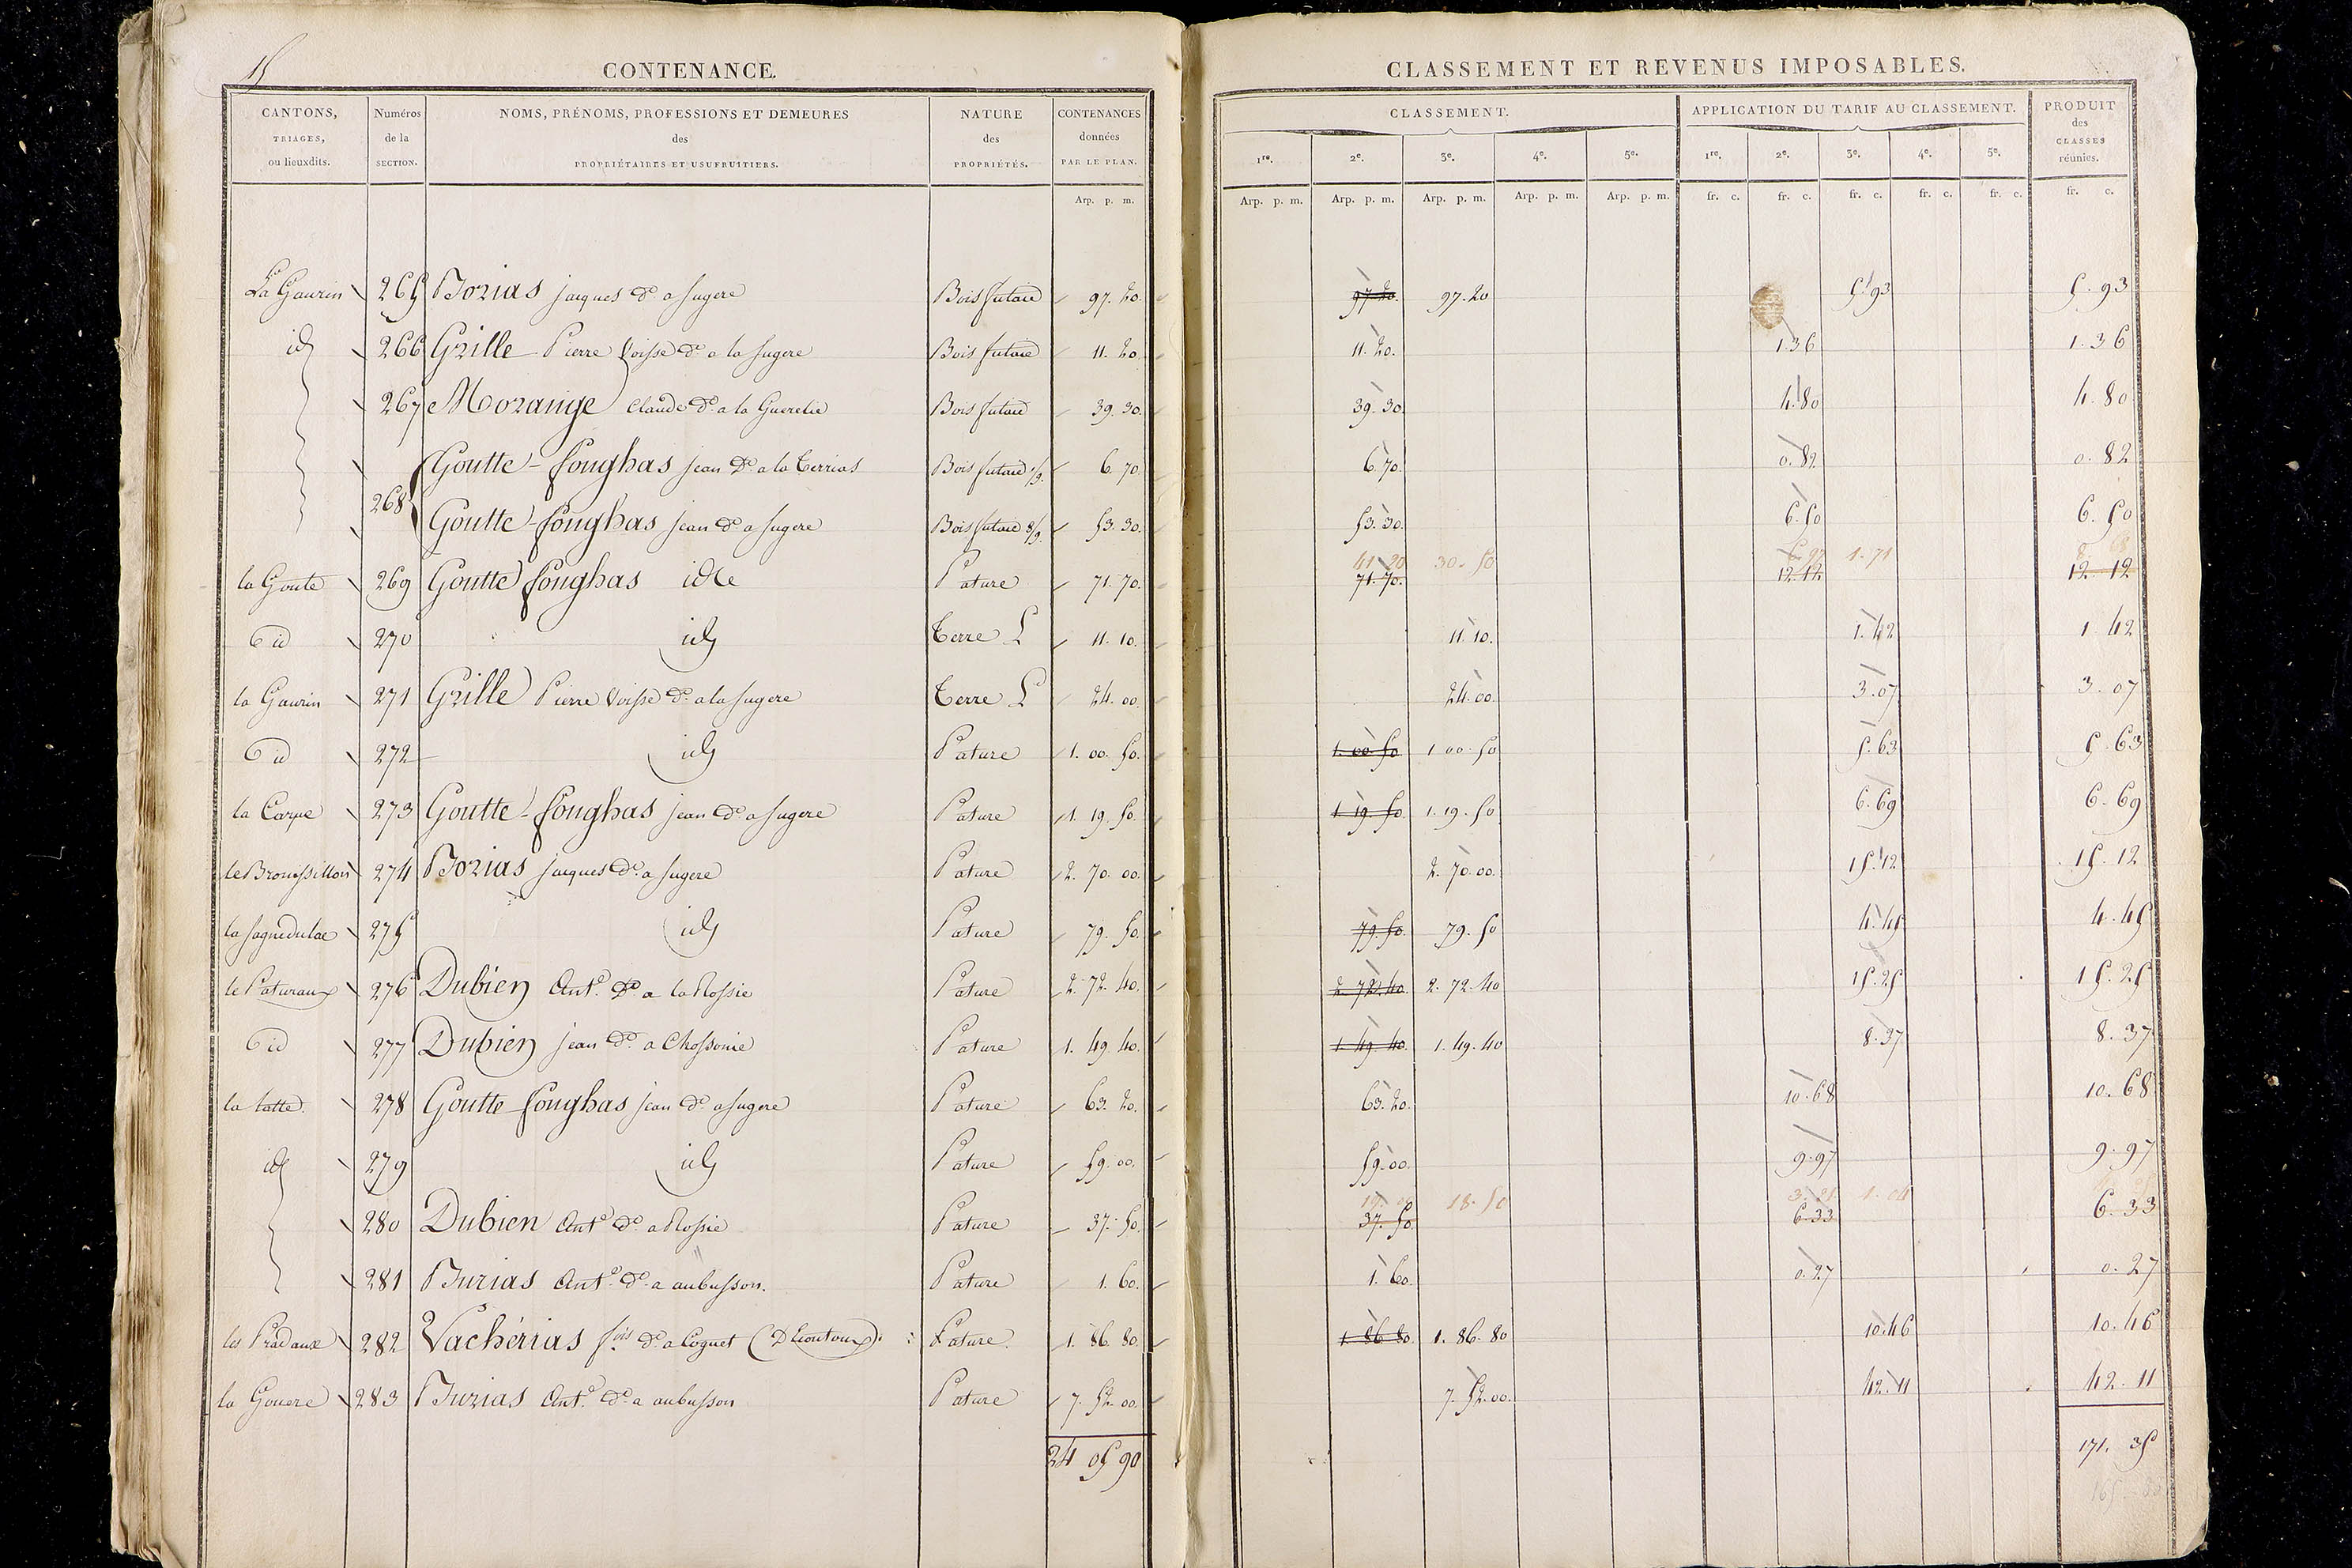 15
CONTENANCE.
CLASSEMENT ET REVENUS IMPOSABLES.
CANTONS, TRIAGES, ou lieuxdits. Numéros de la SECTION. NOMS, PRÉNOMS, PROFESSIONS ET DEMEURES des PROPRIÉTAIRES ET USUFRUITIERS. NATURE des PROPRIÉTÉS. CONTENANCES données PAR LE PLAN. CLASSEMENT. APPLICATION DU TARIF AU CLASSEMENT. PRODUIT des CLASSES réunies.
1re. 2e. 3e. 4e. 5e. 1re. 2e. 3e. 4e. 5e.
Arp. p. m. Arp. p. m. Arp. p. m. Arp. p. m. Arp. p. m. Arp. p. m. fr. c. fr. c. fr. c. fr. c. fr. c. fr. c.
La Gaurin 265 Borias jacques do a fugere Bois futaie 97. 20. 97. 20. 97. 20 5. 93 5. 93
id 266 Grille Pierre Voisse do a la fugere Bois futaie 11. 20. 11. 20. 1. 36 1. 36
267 Morange Claude do a la Bois futaie 39. 30. 39. 30. 4. 80 4. 80
268 Goutte-fonghas jean do a la Terrias Bois futaie 1/9. 6. 70. 6. 70. 0. 82 0. 82
Goutte-fonghas jean do a fugere Bois futaie 8/9. 53. 30. 53. 30. 6. 50 6. 50
la Goute 269 Goutte fonghas idle Pature 71. 70. 41. 20 71. 70. 30. 50 12. 12 1. 71 12. 12
id 270 id Terre L 11. 10. 11. 10. 1. 42 1. 42
la Gaurin 271 Grille Pierre Voisse do a la fugere Terre L 24. 00. 24. 00. 3. 07 3. 07
id 272 id Pature 1. 00. 50. 1. 00. 50 1 00. 50 5. 63 5. 63
la Carpe 273 Goutte-fonghas jean do a fugere Pature 1. 19. 50. 1. 19. 50. 1. 19. 50 6. 69 6. 69
le Brouissillon 274 Borias jacques do a fugere Pature 2. 70. 00. 2. 70. 00. 15. 12 15. 12
la fagnedulac 275 id Pature 79. 50. 79. 50. 79. 50 4. 45 4. 45
le Paturaux 276 Dubien Ante. do a la Rossie Pature 2. 72. 40. 2. 72. 40. 2. 72. 40 15. 25 15. 25
id 277 Dubien jean do a Chossonie Pature 1. 49. 40. 1. 49. 40. 1. 49. 40 8. 37 8. 37
la tatte 278 Goutte-fonghas jean do a fugere Pature 63. 20. 63. 20. 10. 68 10. 68
id 279 id Pature 59. 00. 59. 00. 9. 97 9. 97
280 Dubien Ante. do a Rossie Pature 37. 50. 37. 50 18. 50 6. 33 1. 04 6. 33
281 Burias Ante. do a aubusson. Pature 1. 60. 1. 60. 0. 27 0. 27
les Pradaux 282 Vachérias fois. do a Coguet Pature 1. 86. 80. 1. 86. 80. 1. 86. 80 10. 46 10. 46
la Gouere 283 Burias Ante. do a aubusson Pature 7. 52. 00. 7. 52. 00. 42. 11 42. 11
24 05 90 171. 35